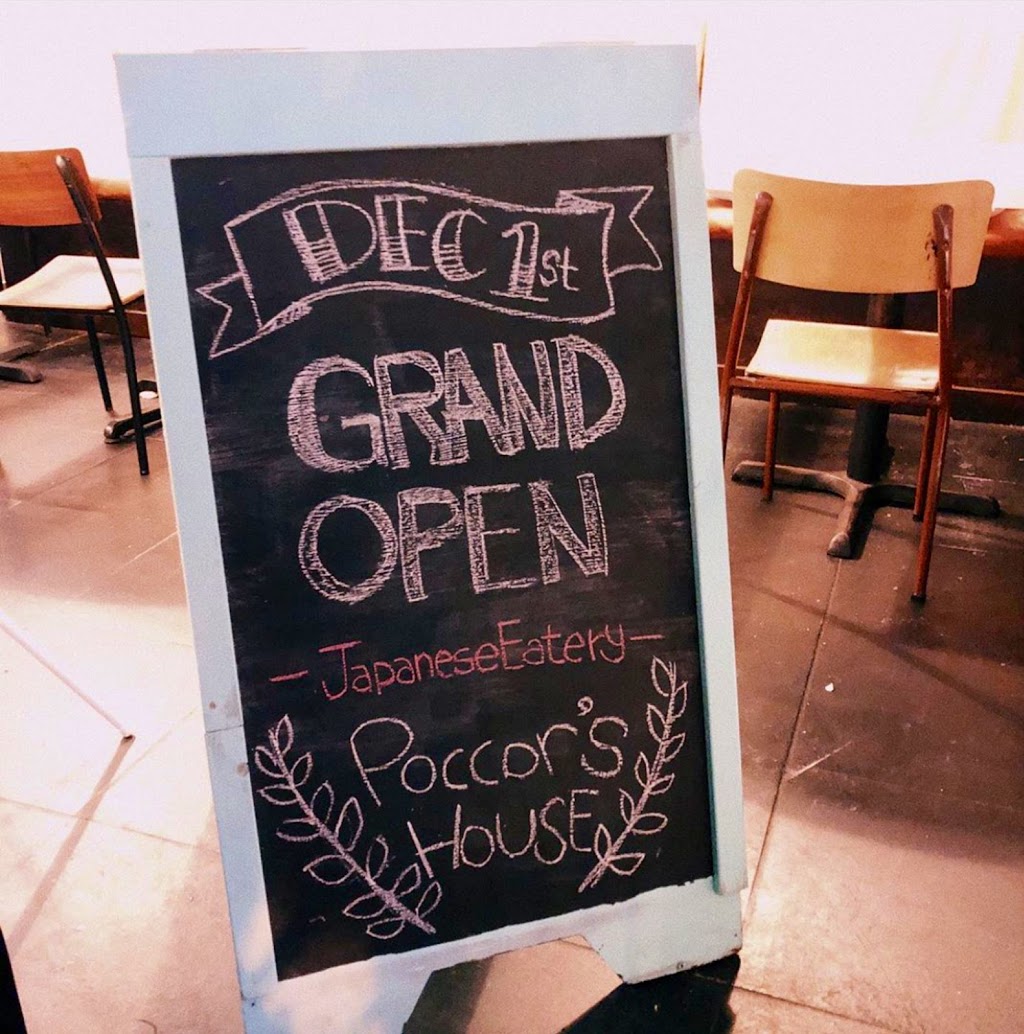 DEC 1st
GRAND
OPEN
- JapaneseEatery -
Poccor's
HOUSE